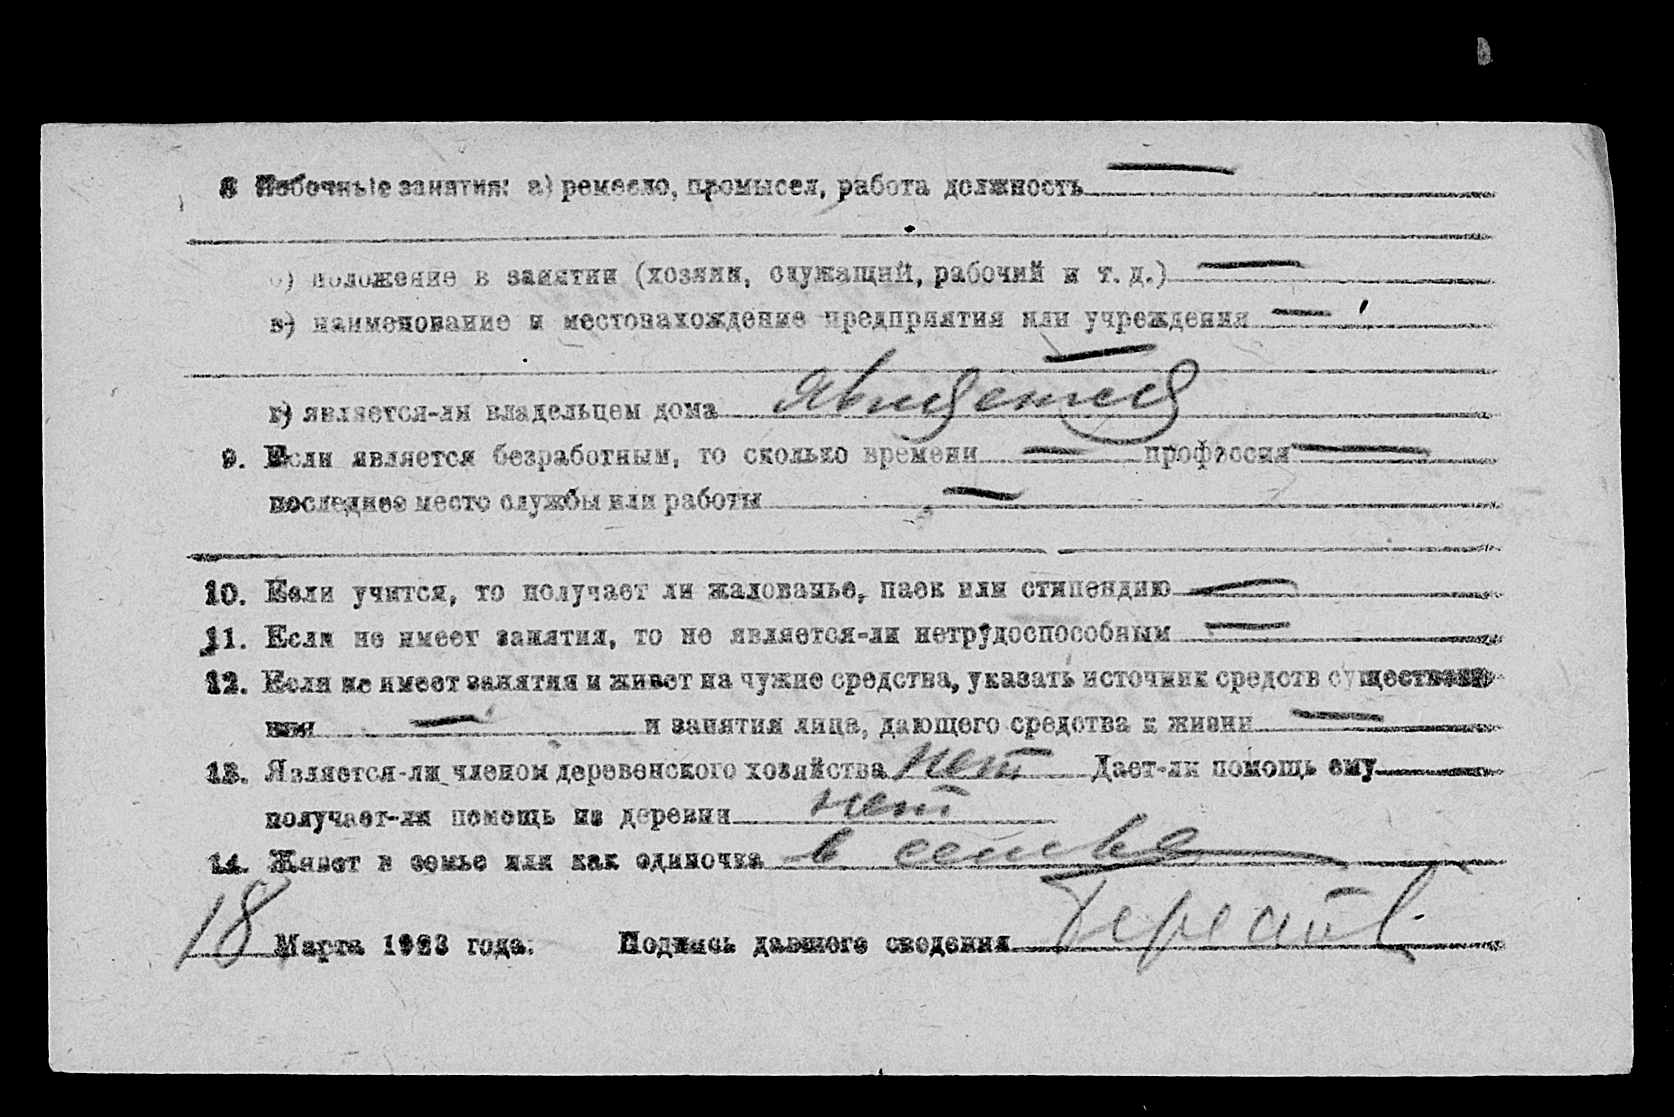 8 Побочные занятия: а) ремесло, промысел, работа должность —
б) положение в занятии (хозяин, служащий, рабочий и т. д.) —
в) наименование и местонахождение предприятия или учреждения —
—
г) является-ли владельцем дома является
9. Если является безработным, то сколько времени — профессия —
последнее место службы или работы —
10. Если учится, то получает ли жалованье, паек или стипендию —
11. Если не имеет занятия, то не является-ли нетрудоспособным —
12. Если не имеет занятия и живет на чужие средства, указать источник средств существова-
ния — и занятия лица, дающего средства к жизни —
13. Является-ли членом деревенского хозяйства нет Дает-ли помощь ему
получает-ли помощь из деревни нет
14. Живет в семье или как одиночка в семье
18 Марта 1923 года. Подпись давшего сведения